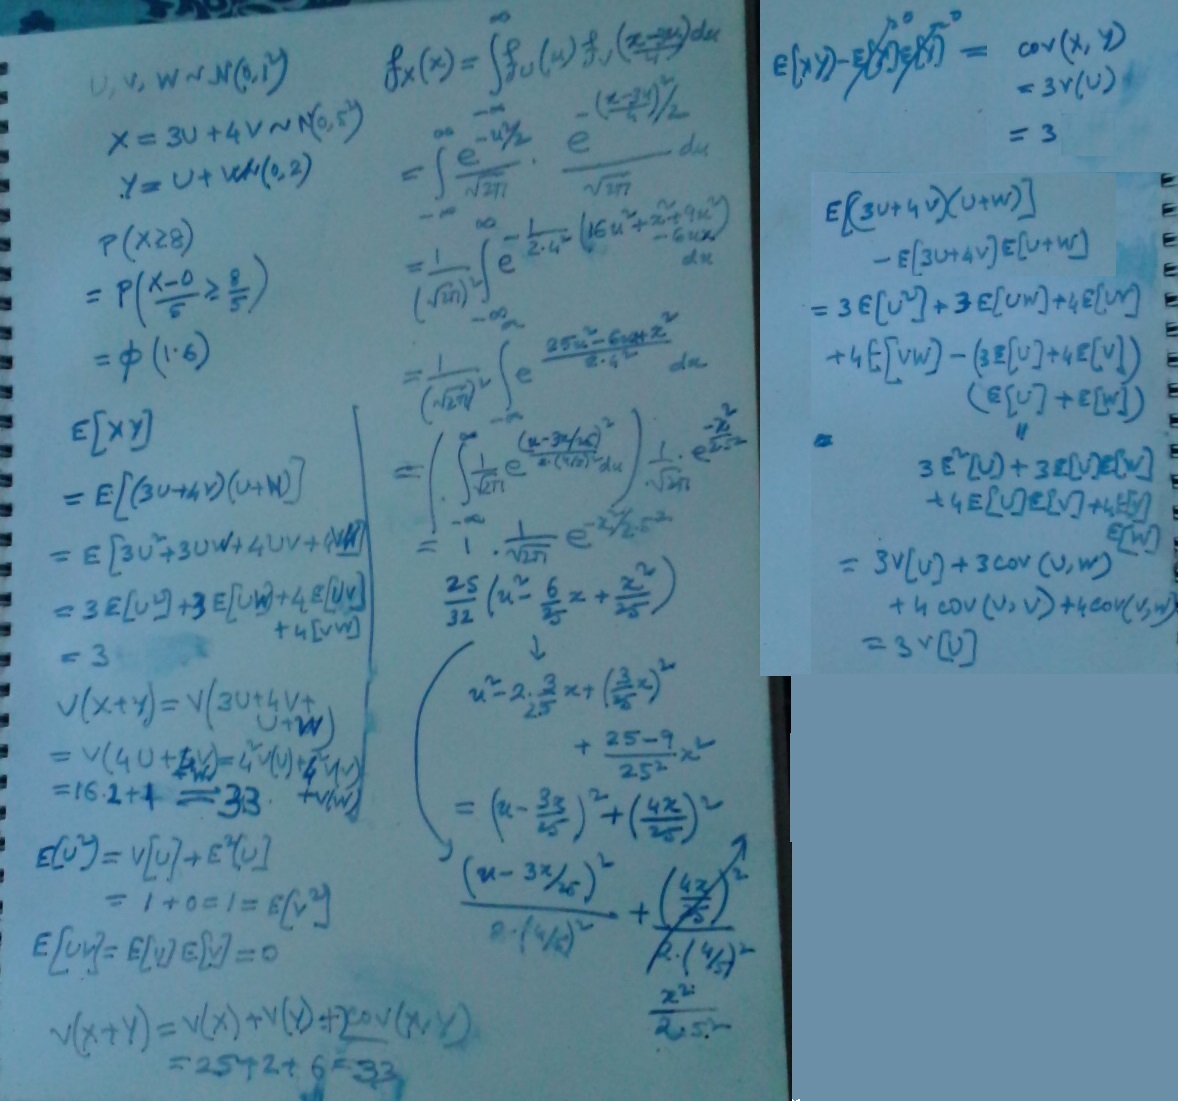 U, V, W ~ N(0,1²)
X = 3U + 4V ~ N(0,5²)
Y = U + W ~ (0,2)
P(X≥8)
= P((X-0)/5 ≥ 8/5)
= φ(1.6)
E[XY]
= E[(3U+4V)(U+W)]
= E[3U²+3UW+4UV+4VW]
= 3E[U²]+3E[UW]+4E[UV]
+4[VW]
= 3
V(X+Y) = V(3U+4V+
U+W)
= V(4U+4V+W) = 4²V(U)+4²V(V)
+V(W)
=16.2+1 = 33.
E[U²) = V[U]+E²[U]
= 1+0=1= E[V²]
E[UV] = E[U]E[V]=0
V(X+Y) = V(X)+V(Y)+2cov(X,Y)
= 25+2+6=33
f_X(x) = ∫_{-∞}^{∞} f_U(u) f_V((x-3u)/4) du
= ∫_{-∞}^{∞} e^{-u²/2}/√2π · e^{-((x-3u)/4)²/2}/√2π du
= 1/(√2π)² ∫_{-∞}^{∞} e^{-1/(2·4²) (16u²+x²+9u²-6ux)} du
= 1/(√2π)² ∫_{-∞}^{∞} e^{(25u²-6ux+x²)/(2·4²)} du
= (∫_{-∞}^{∞} 1/√2π e^{(u-3x/25)²/(2·(4/5)²)} du) 1/√2π · e^{-x²/2·5²}
= 1 · 1/√2π e^{-x²/2·5²}
25/32 (u² - 6/25 x + x²/25)
↓
u²-2·3/25 x+(3/25 x)²
+ (25-9)/25² x²
= (u-3x/25)²+(4x/25)²
(u-3x/25)²/(2·(4/5)²) + (4x/25)²/(2·(4/5)²)
x²/(2·5²)
E[XY]-E[X]E[Y] = cov(X, Y)
0 0
= 3V(U)
= 3
E[(3U+4V)(U+W)]
-E[3U+4V]E[U+W]
= 3E[U²]+3E[UW]+4E[UV]
+4E[VW]-(3E[U]+4E[V])
(E[U]+E[W])
=
3E²[U]+3E[U]E[W]
+4E[U]E[V]+4E[V]
E[W]
= 3V[U]+3cov(U,W)
+4cov(U,V)+4cov(V,W)
= 3V[U]